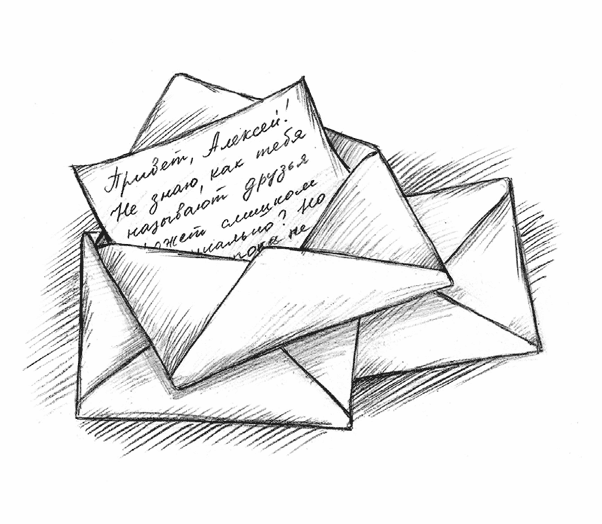 Привет, Алексей!
Не знаю, как тебя
называют друзья
слишком
? Но
пока не